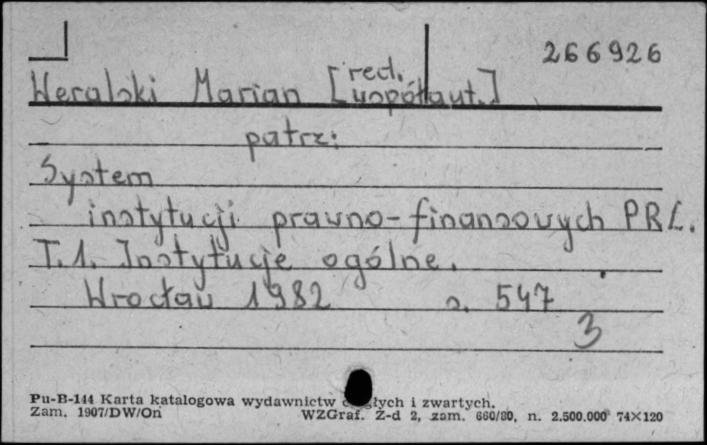 266926
Weralski Marian [red. współaut.]
patrz:
System
instytucji prawno-finansowych PRL.
T.1. Instytucje ogólne.
Wrocław 1982 s. 547
3
Pu-B-144 Karta katalogowa wydawnictw ciągłych i zwartych.
Zam. 1907/DW/On WZGraf. Z-d 2, zam. 660/80, n. 2.500.000 74×120